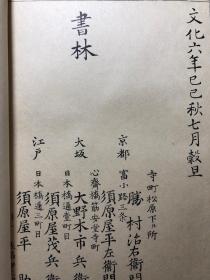 文化六年己巳秋七月穀旦
書林
寺町松原下ル所
勝村治右衛門
京都 富小路三条
須原屋平左衛門
心斎橋筋安堂寺町
大坂 大野木市兵衛
日本橋通壹町目
須原屋茂兵衛
江戸 日本橋通三町目
須原屋平助